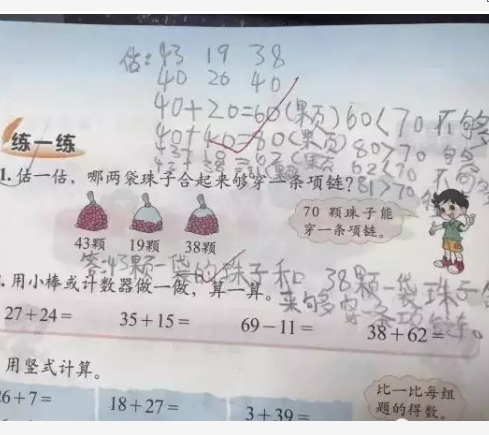 估：43 19 38
40 20 40
40+20=60(果页) 60<70 不够
40+40=80(果页) 80>70 够
练一练
62<70
1. 估一估，哪两袋珠子合起来够穿一条项链？81>70
70 颗珠子能
穿一条项链。
43颗 19颗 38颗
答：43颗一袋的珠子和 38颗一袋珠子合
. 用小棒或计数器做一做，算一算。
来够穿一条项链。
27+24= 35+15= 69-11= 38+62=
用竖式计算。
6+7= 18+27= 3+39=
比一比每组
题的得数。